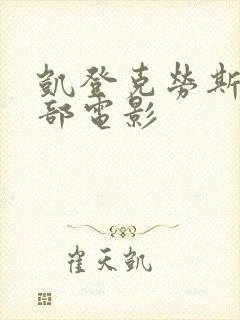 凱登克勞斯
部電影
崔天凱